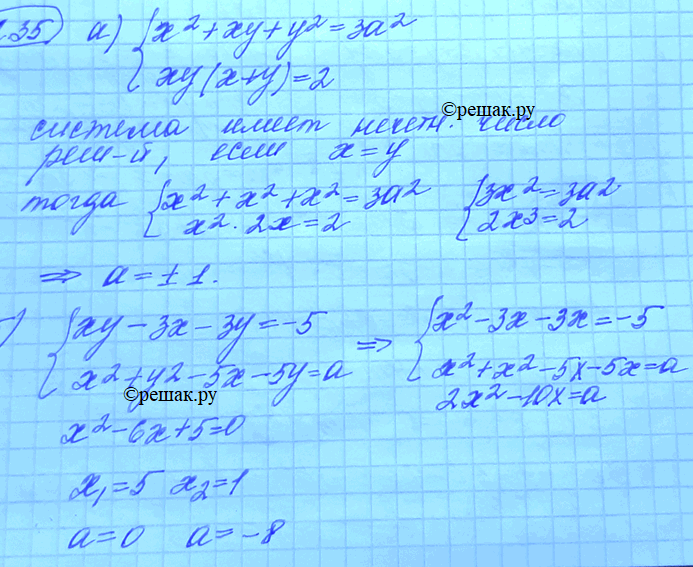 .35) а) { x² + xy + y² = 3a²
xy(x+y) = 2
©решак.ру
система имеет нечетн. число
реш-й, если x = y
тогда { x² + x² + x² = 3a² { 3x² = 3a²
x² · 2x = 2 2x³ = 2
⇒ a = ± 1.
) { xy - 3x - 3y = -5 ⇒ { x² - 3x - 3x = -5
x² + y² - 5x - 5y = a x² + x² - 5x - 5x = a
©решак.ру 2x² - 10x = a
x² - 6x + 5 = 0
x₁ = 5 x₂ = 1
a = 0 a = -8